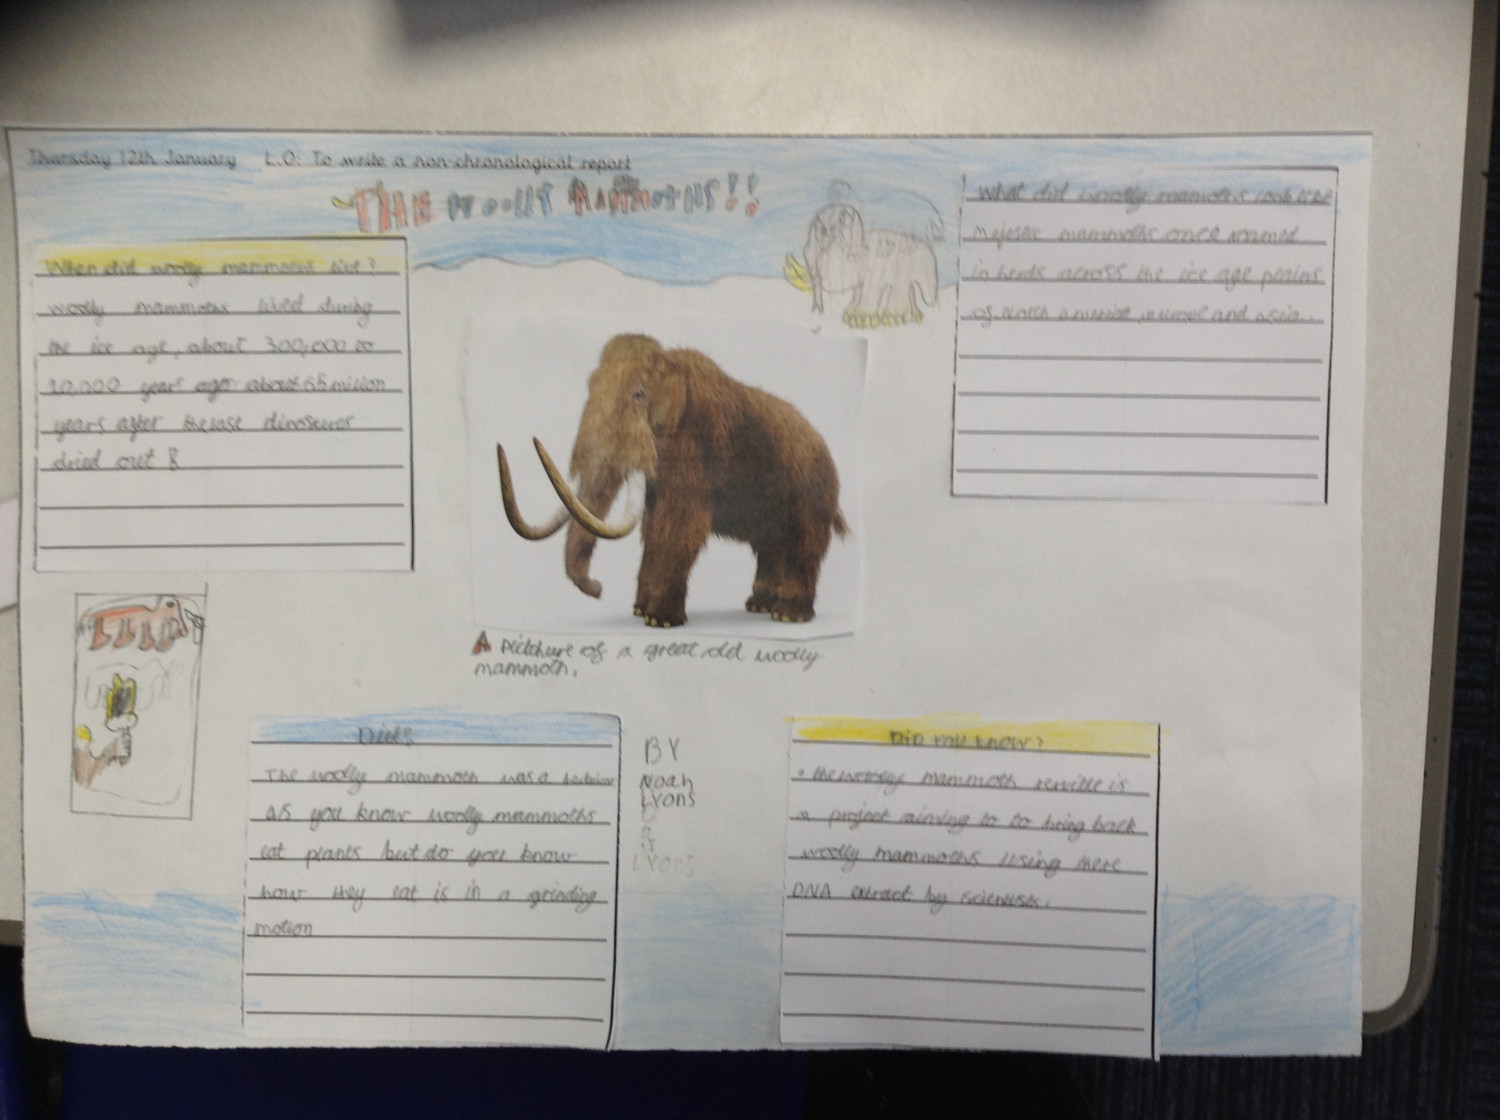 Thursday 12th January L.O: To write a non-chronological report
THE WOOLLY MAMMOTHS!!
When did woolly mammoths live?
woolly mammoths lived during
the ice age, about 300,000 to
10,000 years ago about 65 million
years after the last dinosures
dried out
What did woolly mammoths look like
Majestic mammoths once roamed
in herds across the ice age plains
of North america, europe and asia.
A pictchure of a great old woolly
mammoth.
Diet
The woolly mammoth was a
As you know woolly mammoths
eat plants but do you know
how they eat is in a grinding
motion
BY
Noah
Lyons
Lyons
DID YOU KNOW?
the mammoth is
a project aiming to to bring back
woolly mammoths using there
DNA extract by scientists.